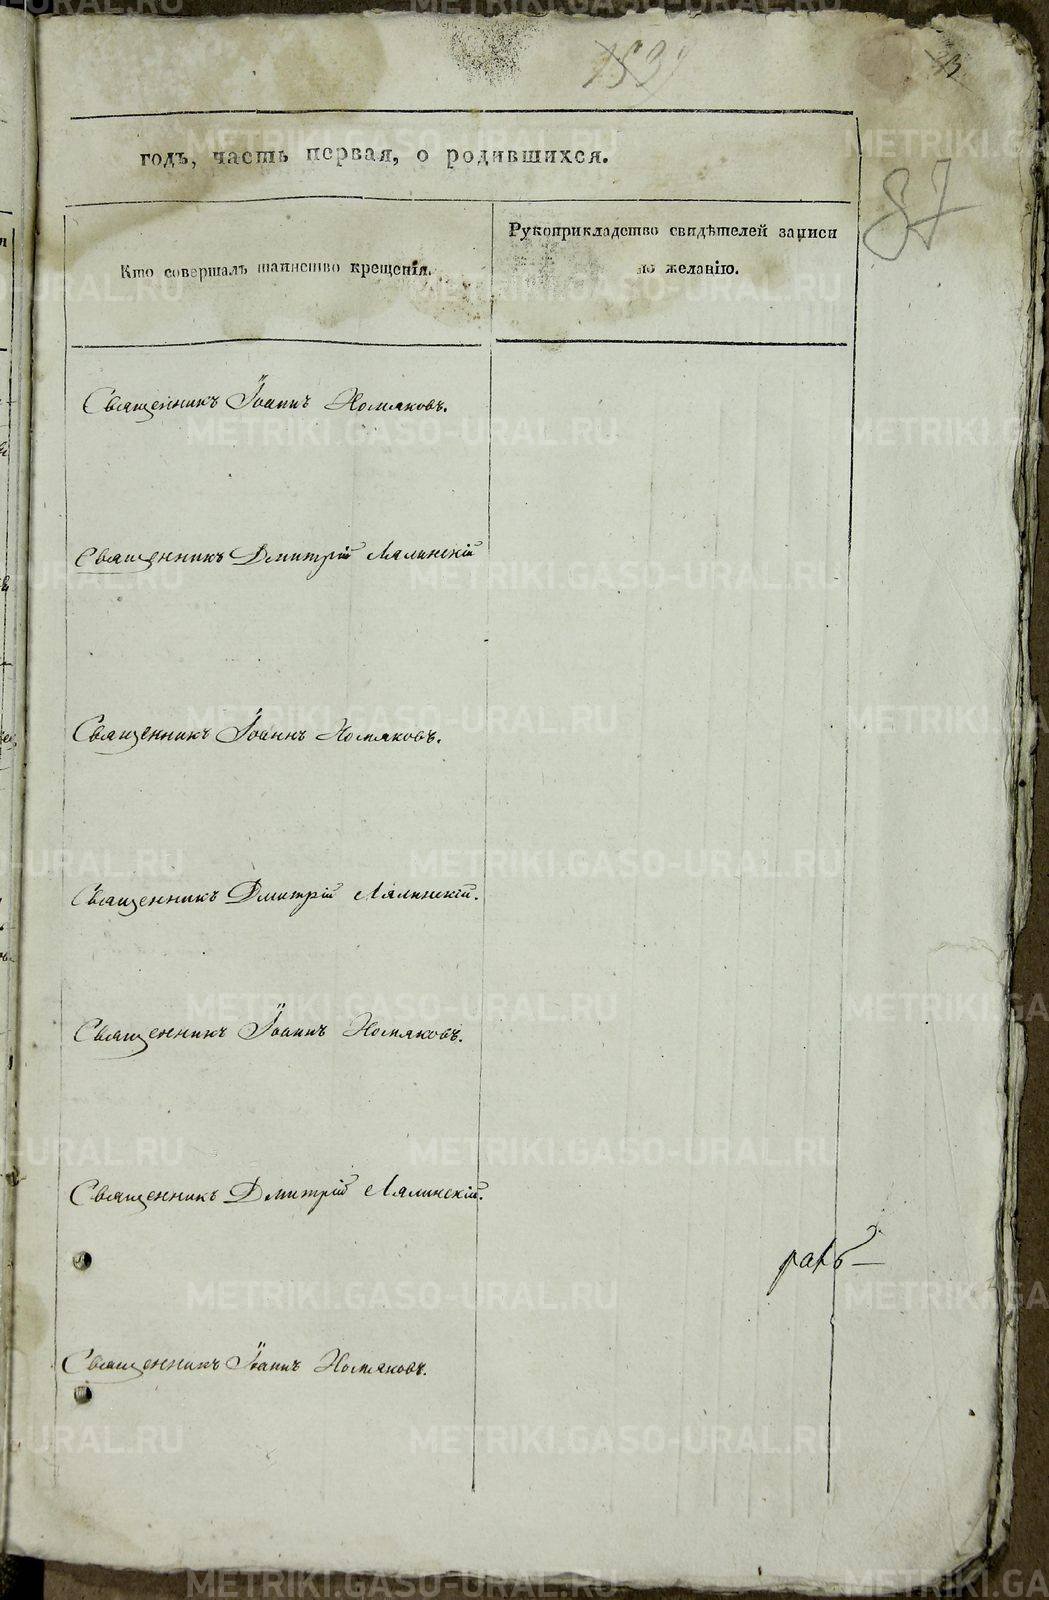 87
годъ, часть первая, о родившихся.
Кто совершалъ таинство крещенія.
Рукоприкладство свидѣтелей записи
по желанію.
Священникъ Іоаннъ Хомяковъ.
Священникъ Дмитрій Лялинскій
Священникъ Іоаннъ Хомяковъ.
Священникъ Дмитрій Лялинскій.
Священникъ Іоаннъ Хомяковъ.
Священникъ Дмитрій Лялинскій.
Священникъ Іоаннъ Хомяковъ.
METRIKI.GASO-URAL.RU